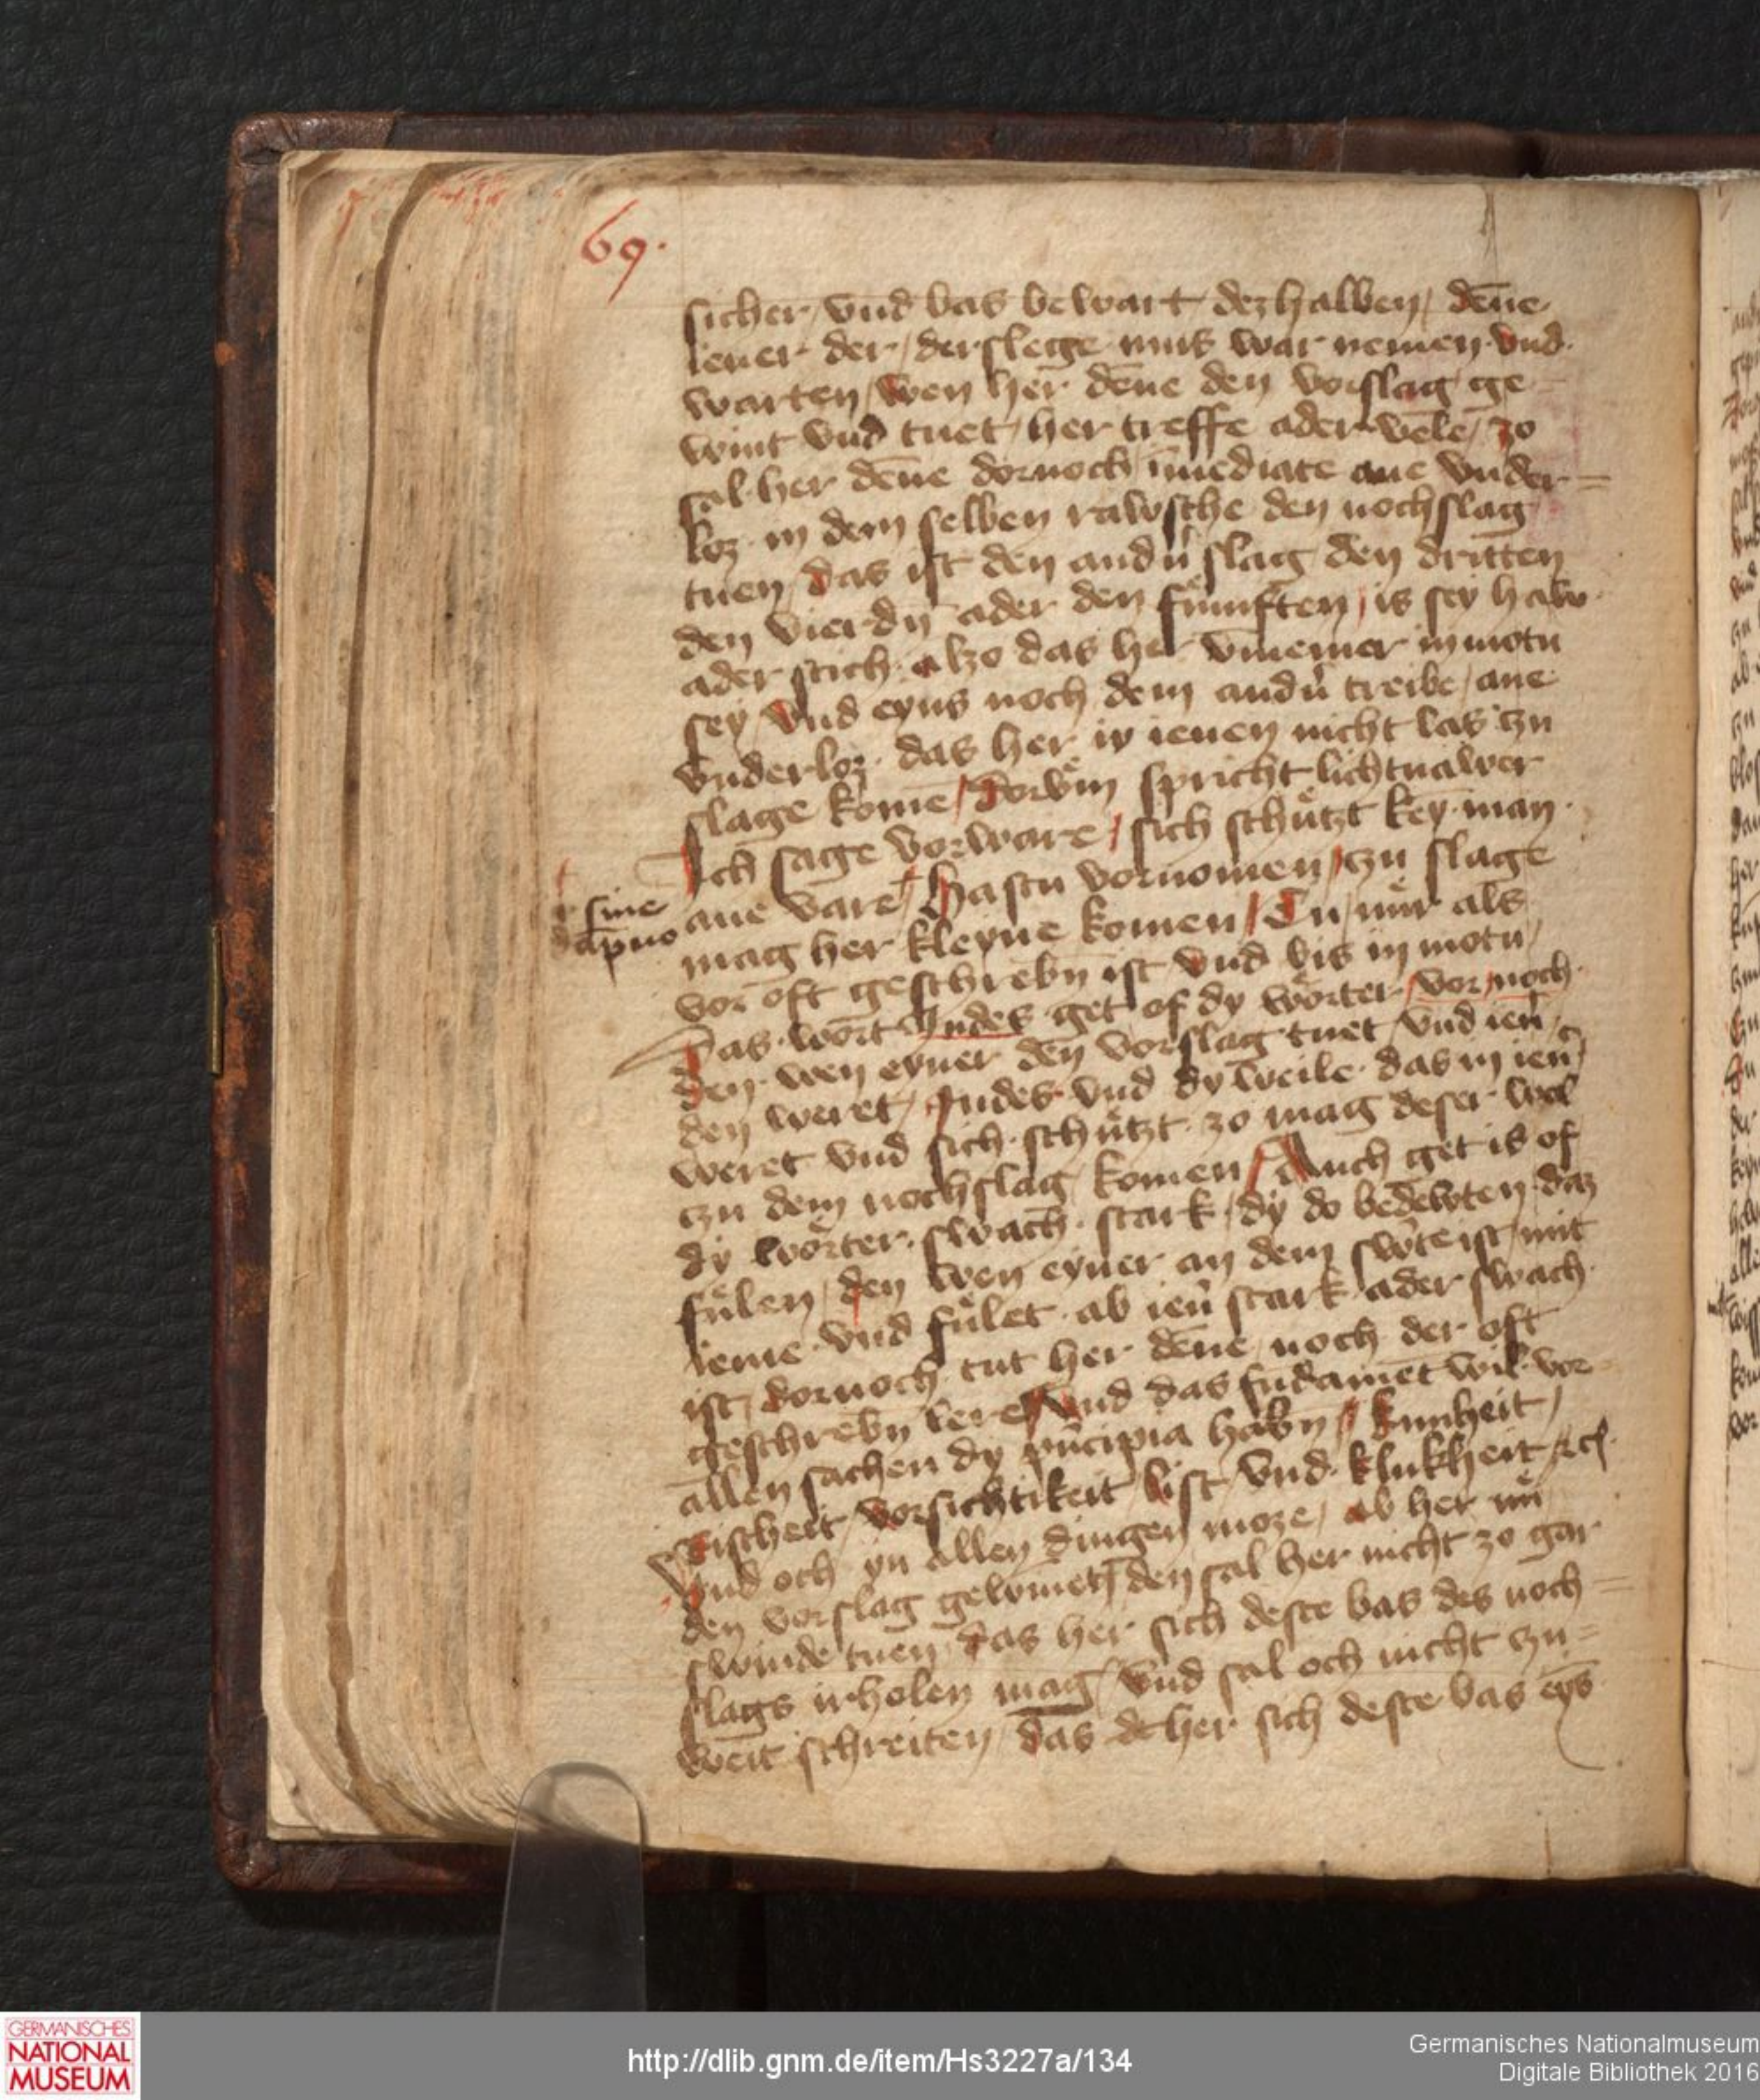 69.
sicher / vnd bas bewart dez halben / deñe
iener der / der slege mus war nemen vnd
warten / wen her deñe den vorslag ge
wint vnd tuet / her treffe ader vele / zo
sal her deñe dornoch im̄ediate ane vnder=
loz in dem selben rawsche den nochslag
tuen / das ist den andn̄ slag den dritten
den vierdn̄ ader den fümften / is sey haw
ader stich alzo das her vm̄emer in motu
sey / vnd eyns noch dem andn̄ treibe / ane
vnderloz das her io ienen nicht las zu
slage komē / Dorvm̄ spricht lichtnawer
Ich sage vorware / sich schützt key man
sine
ane vare / Hastu vornomen / zu slage
dapno
mag her kleyne komen / Tu nür als
vor oft geschrebn̄ ist vnd bis in motu /
Das wort Indes get of dy wörter / vor / noch
den wen eyner den vorslag tuet / vnd ien̄
den weret / Indes vnd dy weile das in ien̄
weret vnd sich schützt zo mag deser wol
czu dem nochslag komen / Auch get is of
dy wörter swach stark / dy do bedewten daz
fülen / den wen eyner an dem sw̄te ist / mit
ieme vnd fület ab ien̄ stark ader swach
ist / dornoch tut her deñe / noch der oft
geschrebn̄ lere / Vnd das fūdamēt wil vor
allen sachen dy pn̄cipia habn̄ / kunheit /
Rischeit / vorsichtikeit / list / vnd klukheit / etc
Vnd och yn allen dingen moze / ab her nü
den vorslag gewīnet / den sal her nicht zo gar
swinde tuen / das her sich deste bas des noch=
slags irholen mag / vnd sal och nicht czu=
weit schreiten / das her sich deste bas eȳs
GERMANISCHES
NATIONAL
MUSEUM
http://dlib.gnm.de/item/Hs3227a/134
Germanisches Nationalmuseum
Digitale Bibliothek 2016